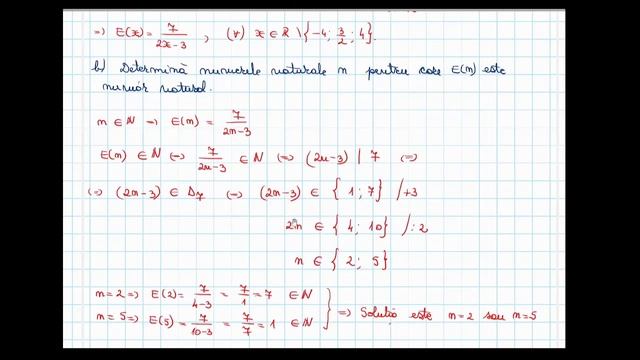 => E(x) = 7/(2x-3) , (∀) x ∈ R \ {-4; 3/2; 4}.
b) Determină numerele naturale n pentru care E(n) este
număr natural.
n ∈ N => E(n) = 7/(2n-3)
E(n) ∈ N <=> 7/(2n-3) ∈ N <=> (2n-3) | 7 <=>
<=> (2n-3) ∈ D7 <=> (2n-3) ∈ {1; 7} /+3
2n ∈ {4; 10} /:2
n ∈ {2; 5}
n=2 => E(2) = 7/(4-3) = 7/1 = 7 ∈ N
n=5 => E(5) = 7/(10-3) = 7/7 = 1 ∈ N } => Soluția este n=2 sau n=5